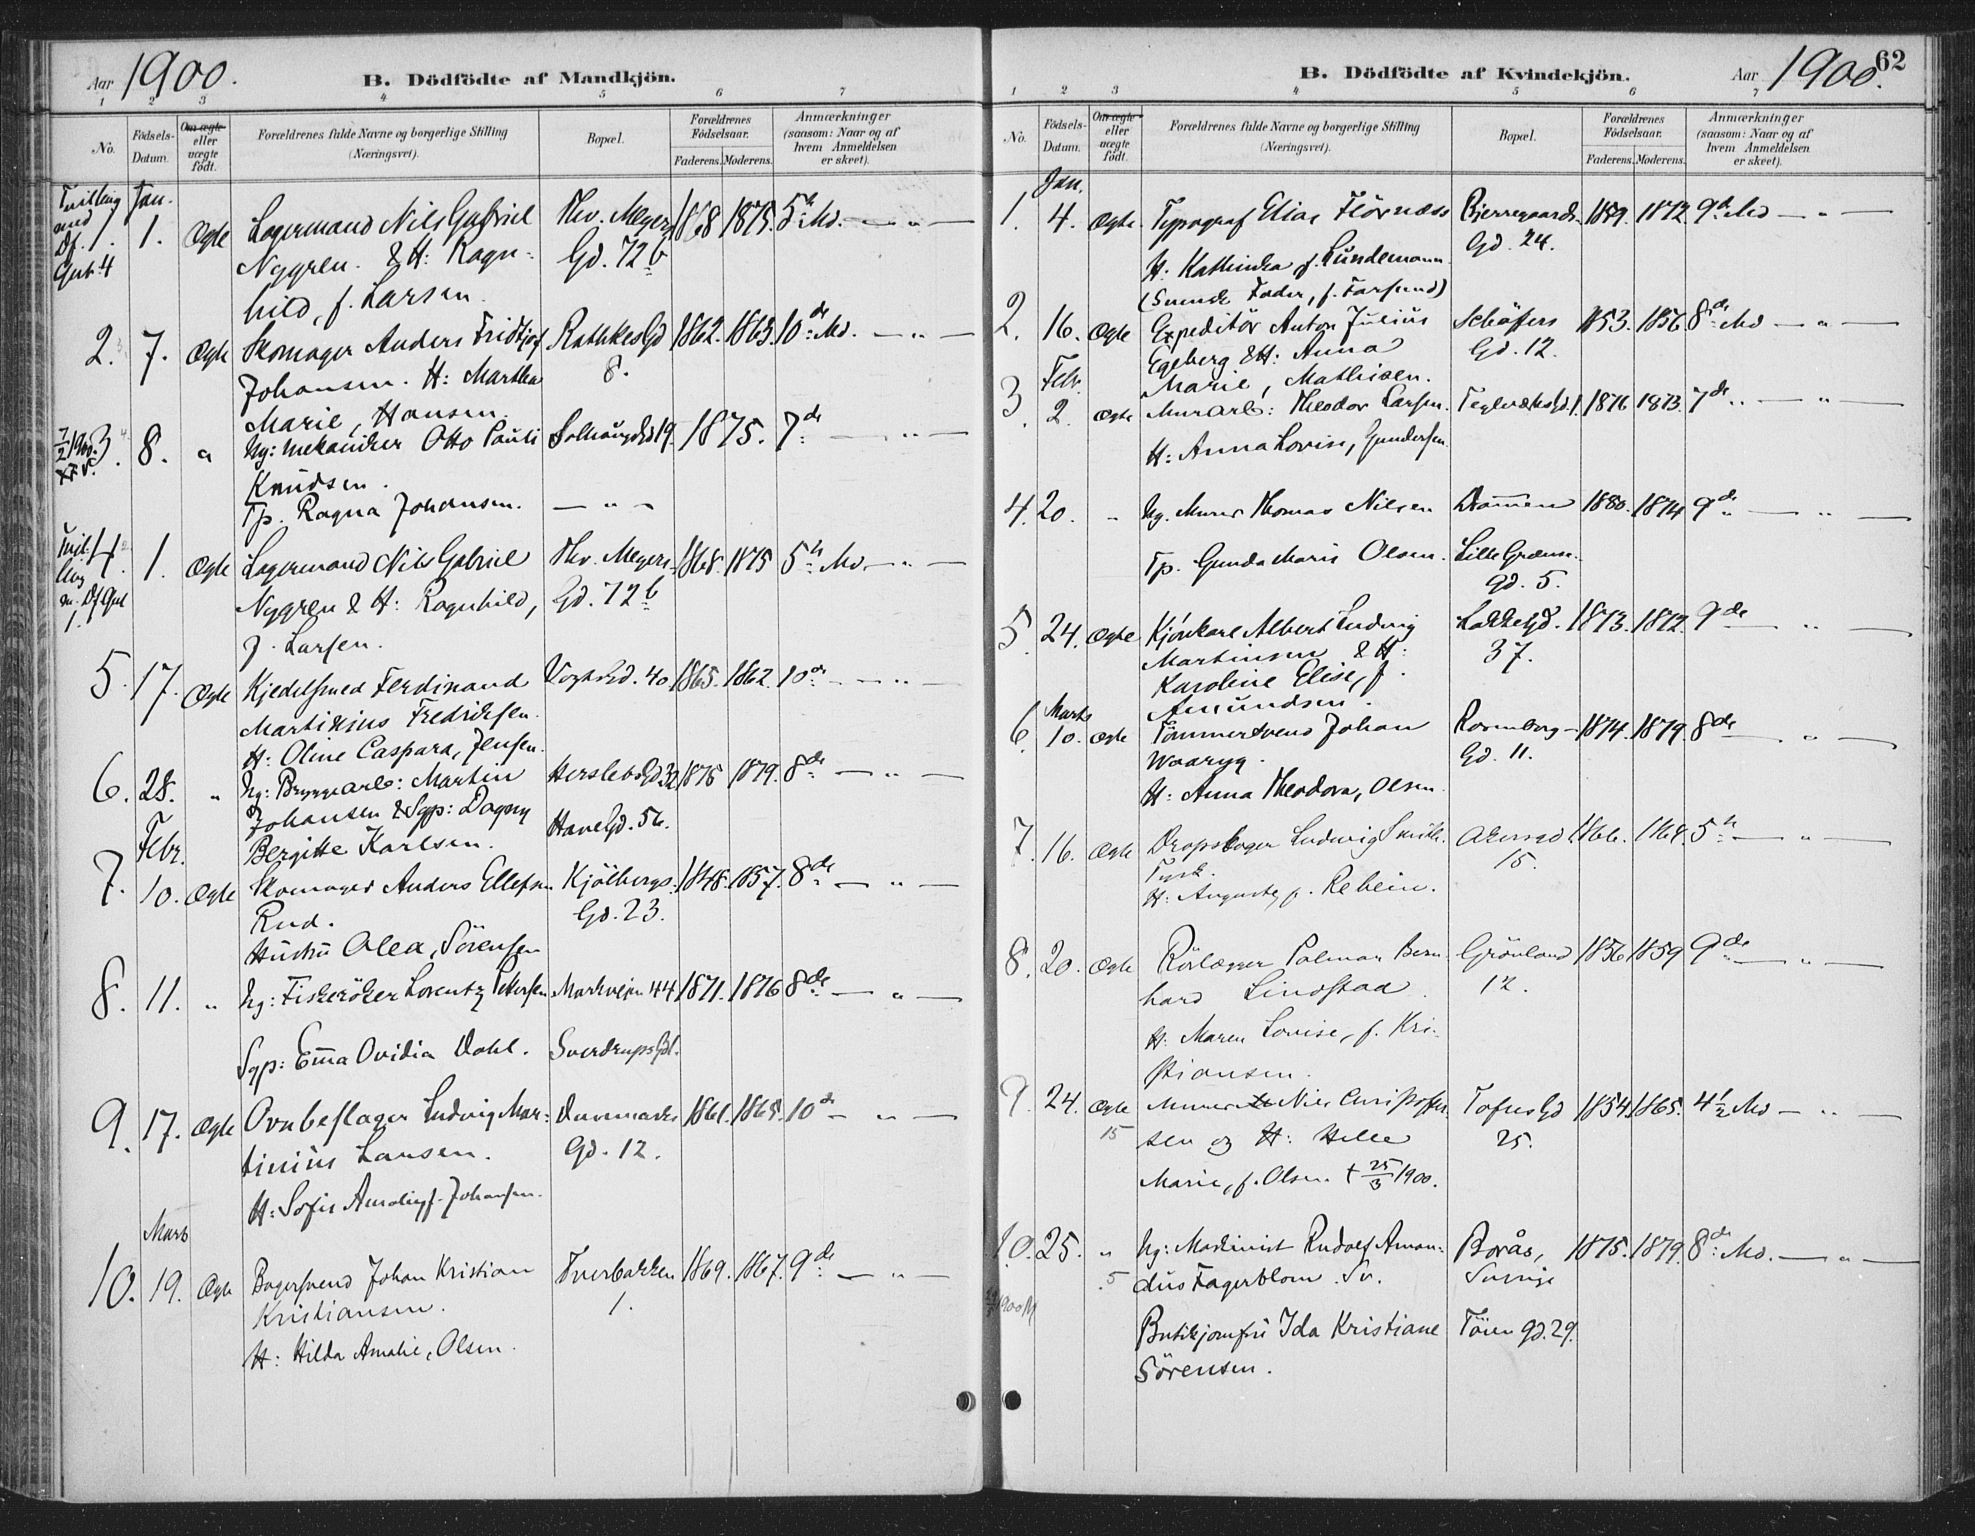 Aar 1900.
B. Dödfödte af Mandkjön.
1 2 3 4 5 6 7
No.
Födsels-Datum.
Om ægte eller uægte født.
Forældrenes fulde Navne og borgerlige Stilling (Næringsvei).
Bopæl.
Forældrenes Födselsaar.
Faderens. Moderens.
Anmærkninger (saasom: Naar og af hvem Anmeldelsen er skeet).
Tvilling Jan.
med
Df. 1. 1. Ægte Lagermand Nils Gabriel Thv. Meyers 1868 1875. 5 Md. — „ —
Gut 4 Nygren. & H: Ragn- Gd. 72b
hild, f. Larsen.
2. 7. Ægte Skomager Anders Fridtjof Rathkesgd 1862. 1863. 10de Md. — „ —
Johansen. H: Martha 8.
Marie, Hansen.
3. 8. Ug: mekaniker Otto Pauli 19. 1875. 7de — „ —
Knudsen.
Tp. Ragna Johansen. — „ —
4. 1. Ægte Lagermand Nils Gabriel Thv. Meyers 1868. 1875 5 Md. — „ —
Nygren & H: Ragnhild, Gd. 72b
f. Larsen.
5. 17. Ægte Kjedelsmed Ferdinand Vogtsgd. 40 1865. 1862. 10de — „ —
Martinius Fredriksen.
H: Oline Caspara, Jensen.
6. 28. „ Ug: Bryggearb: Martin Herslebsgd 32 1875 1879. 8de — „ —
Johansen & Sgp: Dagny HaveGd. 56.
Febr. Bergitte Karlsen.
7. 10. Ægte Skomager Anders Ellefsen Kjölbergs- 1848. 1857. 8de — „ —
Rud. Gd. 23.
Hustru Olea, Sörensen
8. 11. „ Ug: Fiskeröker Lorentz Pettersen Markveien 44 1871. 1876 8de — „ —
Sgp: Emma Ovidia Dahl. Sverdrupsgd 1.
9. 17. Ægte Ovnbeslager Ludvig Mar- Danmarks 1861. 1865. 10de — „ —
tinius Larsen. Gd. 12.
H: Sofie f. Johansen.
Marts
10. 19. Ægte Bagersvend Johan Kristian Tverbakken 1869. 1867. 9de — „ —
Kristiansen. 1.
H: Hilda Amalie, Olsen.
B. Dödfödte af Kvindekjön.
Aar 1900. 62
1 2 3 4 5 6 7
No.
Födsels-Datum.
Om ægte eller uægte födt.
Forældrenes fulde Navne og borgerlige Stilling (Næringsvei).
Bopæl.
Forældrenes Födselsaar.
Faderens. Moderens.
Anmærkninger (saasom: Naar og af hvem Anmeldelsen er skeet).
Jan.
1. 4. Ægte Typograf Elias Flörnæss Bjerregaards- 1859. 1872. 9de Md — „ —
H: Kathinka f. Lundemann Gd. 24.
(Svensk Fader, f. Farsund)
2. 16. Ægte Expeditör Anton Julius Schöffers 1853. 1856 8de Md — „ —
Egeberg & H: Anna Gd. 12.
Febr. Marie, Mathisen.
3. 2. Ægte Murarb: Theodor Larsen. Teglverksgd. 1. 1876 1873. 7de „ — „ —
H: Anna Lovise, Gundersen
4. 20. „ Ug. Murer Thomas Nilsen Drammen 1880. 1874 9de — „ —
Tp. Gunda Marie Olsen. Lille Grænse-
gd. 5.
5. 24. Ægte Kjörekarl Albert Ludvig Lakkegd. 1873. 1872. 9de — „ —
Martinsen & H: 37.
Karoline Elise, f.
Marts Amundsen.
6. 10. Ægte Tömmersvend Johan Rosenborg- 1874. 1879. 8de — „ —
Waaryg. Gd. 11.
H: Anna Theodora, Olsen.
7. 16. Ægte Dropskoger Ludwig Smith. Akersgd. 1866. 1864. 5 — „ —
Tysk. 15.
H: Auguste, f. Rebein.
8. 20. Ægte Rörlægger Palmar Bern- Grönland 1856 1859 9de — „ —
hard Lindstad 12.
H: Maren Lovise, f. Kri-
stiansen.
9. 24. Ægte Murer Nils Christoffer- Tøfusgd 1854. 1865. 4½ Md — „ —
15 sen og H: Helle 25.
Marie, f. Olsen. † 25/3 1900.
10. 25. „ Ug: Maskinist Rudolf Aman- Borås, 1875. 1879. 8de Md. — „ —
5 dus Fagerblom. Sv. Sverige
Butikjomfru Ida Kristiane Töien gd. 29.
Sörensen.